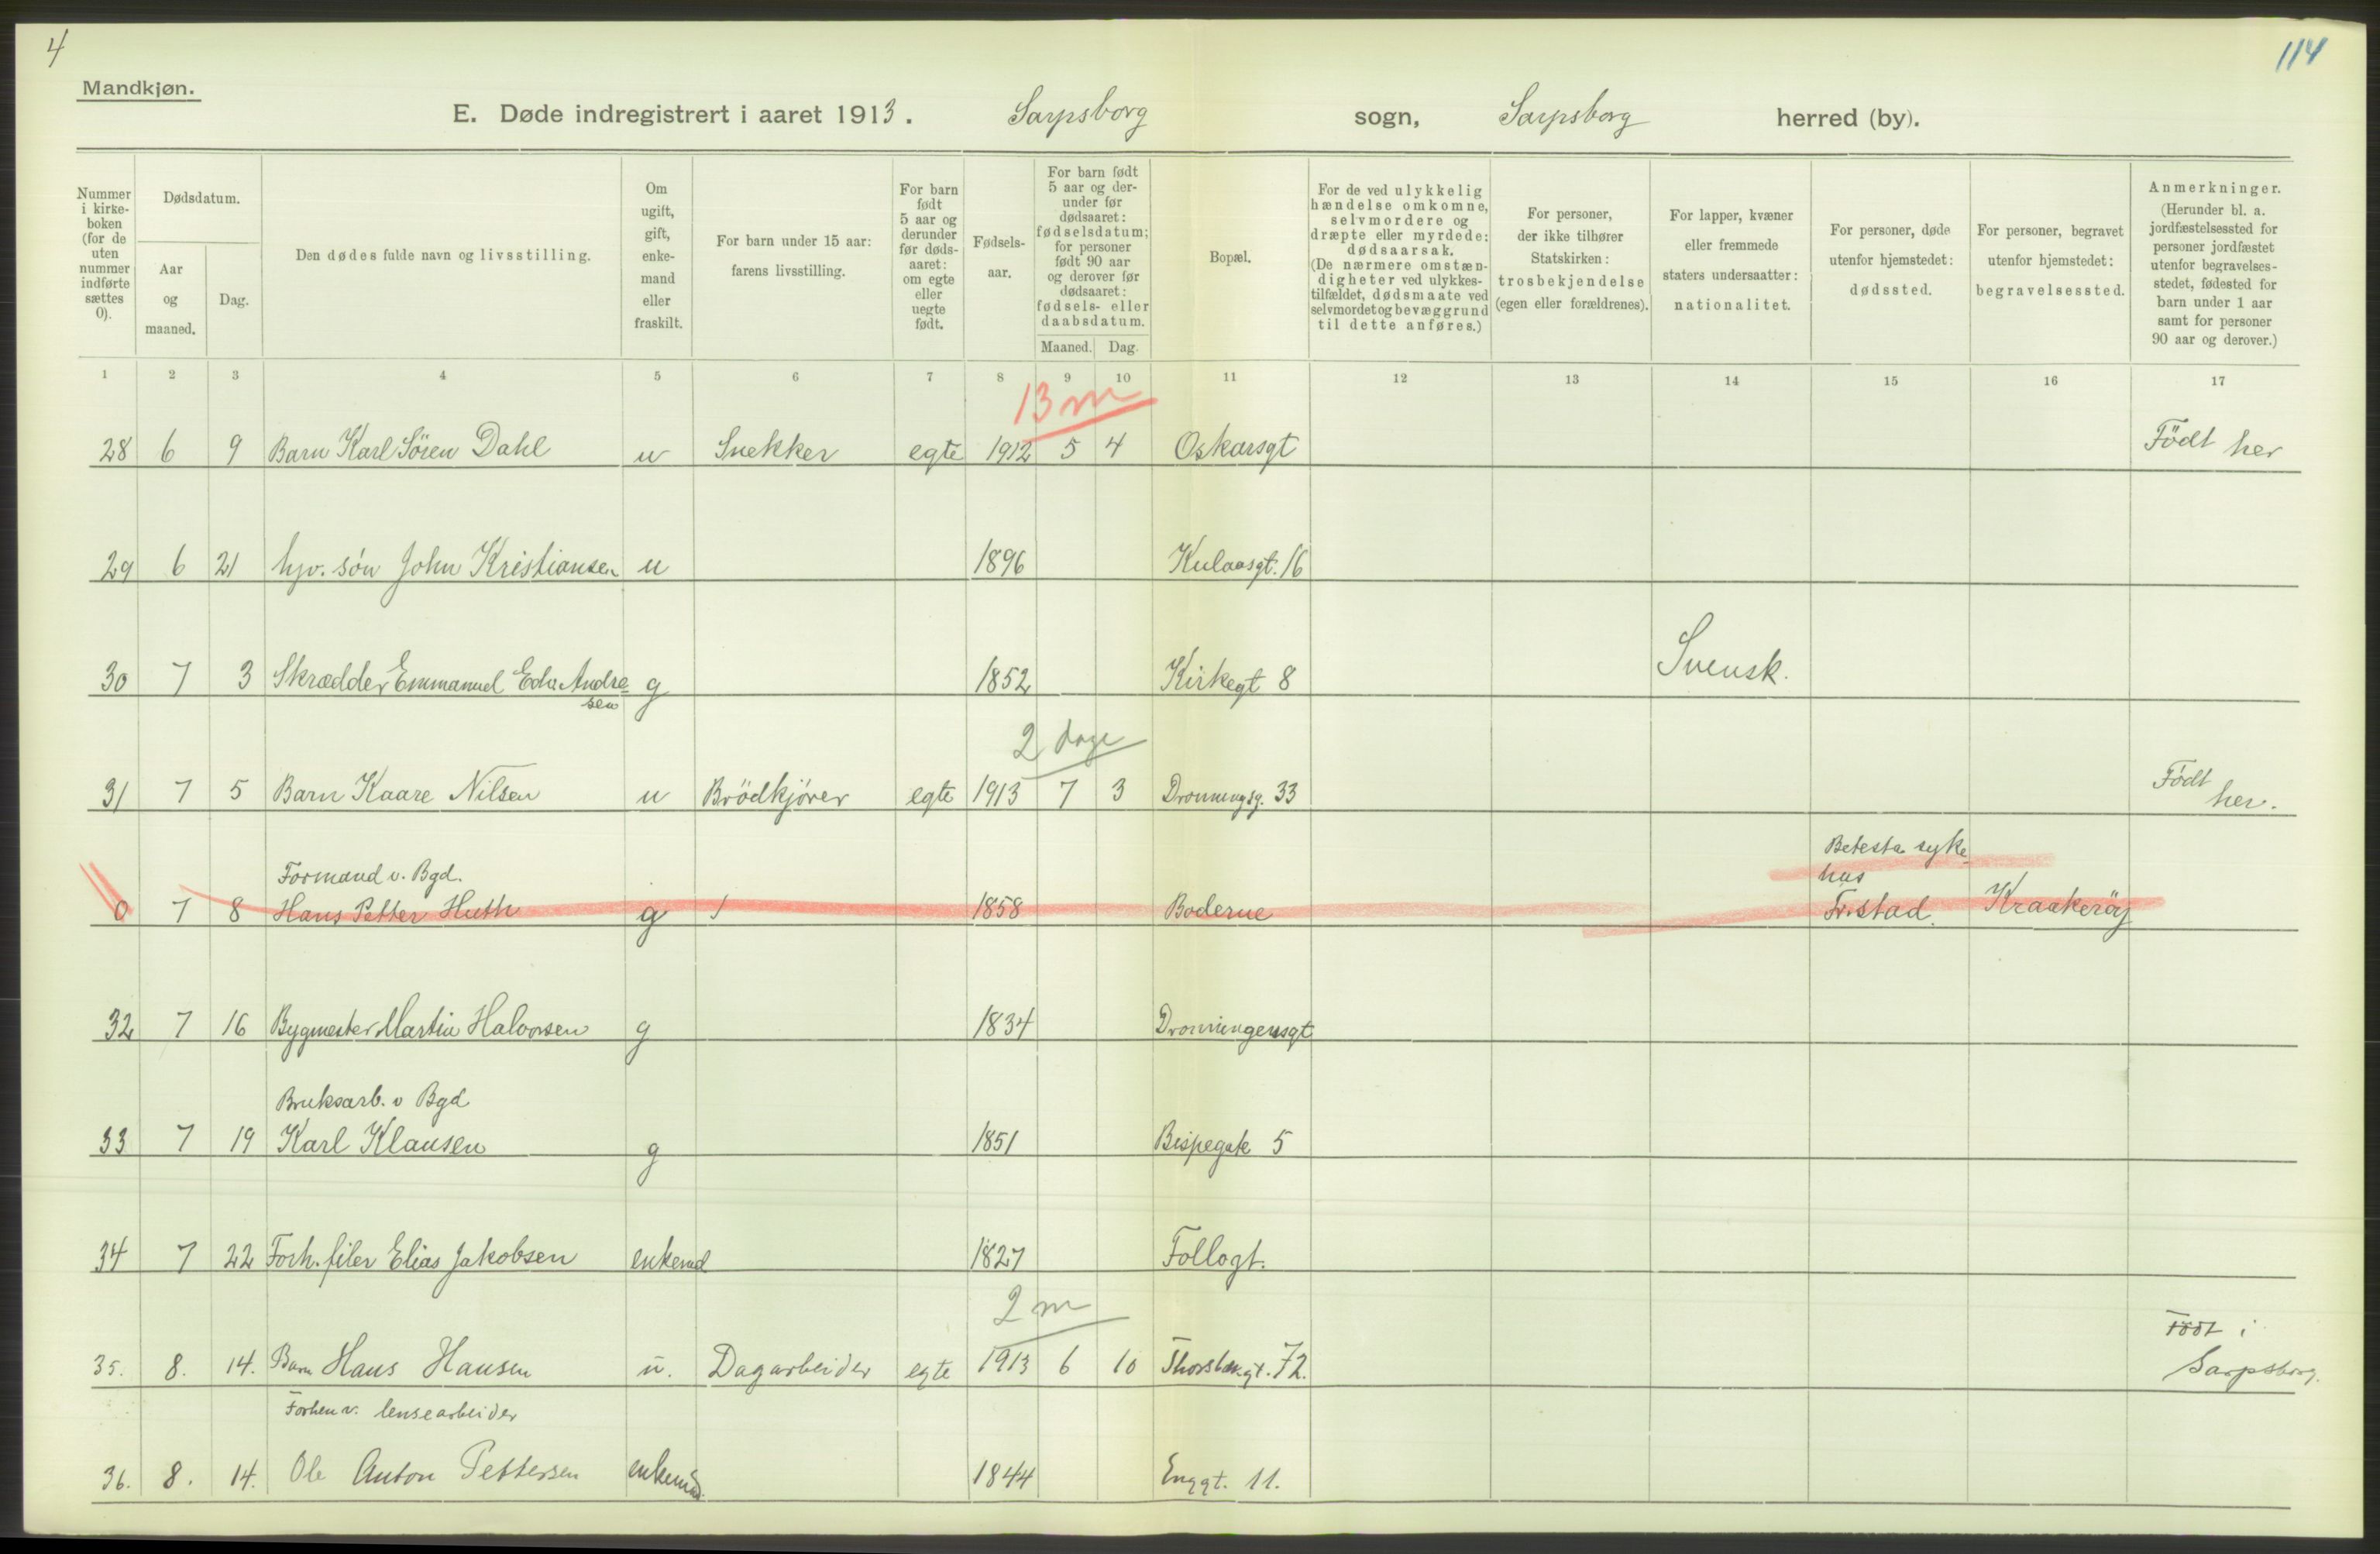 4
114
Mandkjøn.
E. Døde indregistrert i aaret 1913. Sarpsborg sogn, Sarpsborg herred (by).
Nummer i kirkeboken (for de uten nummer indførte sættes 0).
Dødsdatum.
Aar og maaned.
Dag.
Den dødes fulde navn og livsstilling.
Om ugift, gift, enkemand eller fraskilt.
For barn under 15 aar: farens livsstilling.
For barn født 5 aar og derunder før dødsaaret: om egte eller uegte født.
Fødselsaar.
For barn født 5 aar og derunder før dødsaaret: fødselsdatum; for personer født 90 aar og derover før dødsaaret: fødsels- eller daabsdatum.
Maaned. Dag.
Bopæl.
For de ved ulykkelig hændelse omkomne, selvmordere og dræpte eller myrdede: dødsaarsak. (De nærmere omstændigheter ved ulykkestilfældet, dødsmaate ved selvmordet og bevæggrund til dette anføres.)
For personer, der ikke tilhører Statskirken: trosbekjendelse (egen eller forældrenes).
For lapper, kvæner eller fremmede staters undersaatter: nationalitet.
For personer, døde utenfor hjemstedet: dødssted.
For personer, begravet utenfor hjemstedet: begravelsessted.
Anmerkninger. (Herunder bl. a. jordfæstelsessted for personer jordfæstet utenfor begravelsesstedet, fødested for barn under 1 aar samt for personer 90 aar og derover.)
1 2 3 4 5 6 7 8 9 10 11 12 13 14 15 16 17
13 m
28 6 9 Barn Karl Søren Dahl u Snekker egte 1912 5 4 Oskarsgt Födt her
29 6 21 hjv. søn John Kristiansen u 1896 Kulaasgt. 16
30 7 3 Skrædder Emmanuel Edv. Andresen g 1852 Kirkegt 8 Svensk.
2 dage
31 7 5 Barn Kaare Nilsen u Brödkjörer egte 1913 7 3 Dronningsg. 33 Födt her.
Formand v. Bgd. Betesta sykehus
0 7 8 Hans Petter Huth g 1858 Boderne Fr.stad. Kraakeröy
32 7 16 Bygmester Martin Halvorsen g 1834 Dronningensgt
Bruksarb. v Bgd
33 7 19 Karl Klausen g 1851 Bispegate 5
34 7 22 Forh. filer Elias Jakobsen enkemd 1827 Follogt.
2 m
35. 8. 14. Barn Hans Hansen u. Dagarbeider egte 1913 6 10 72. Födt i Sarpsborg.
Forhenv. lensearbeider
36. 8. 14. Ole Anton Pettersen enkemd. 1844 Enggt. 11.